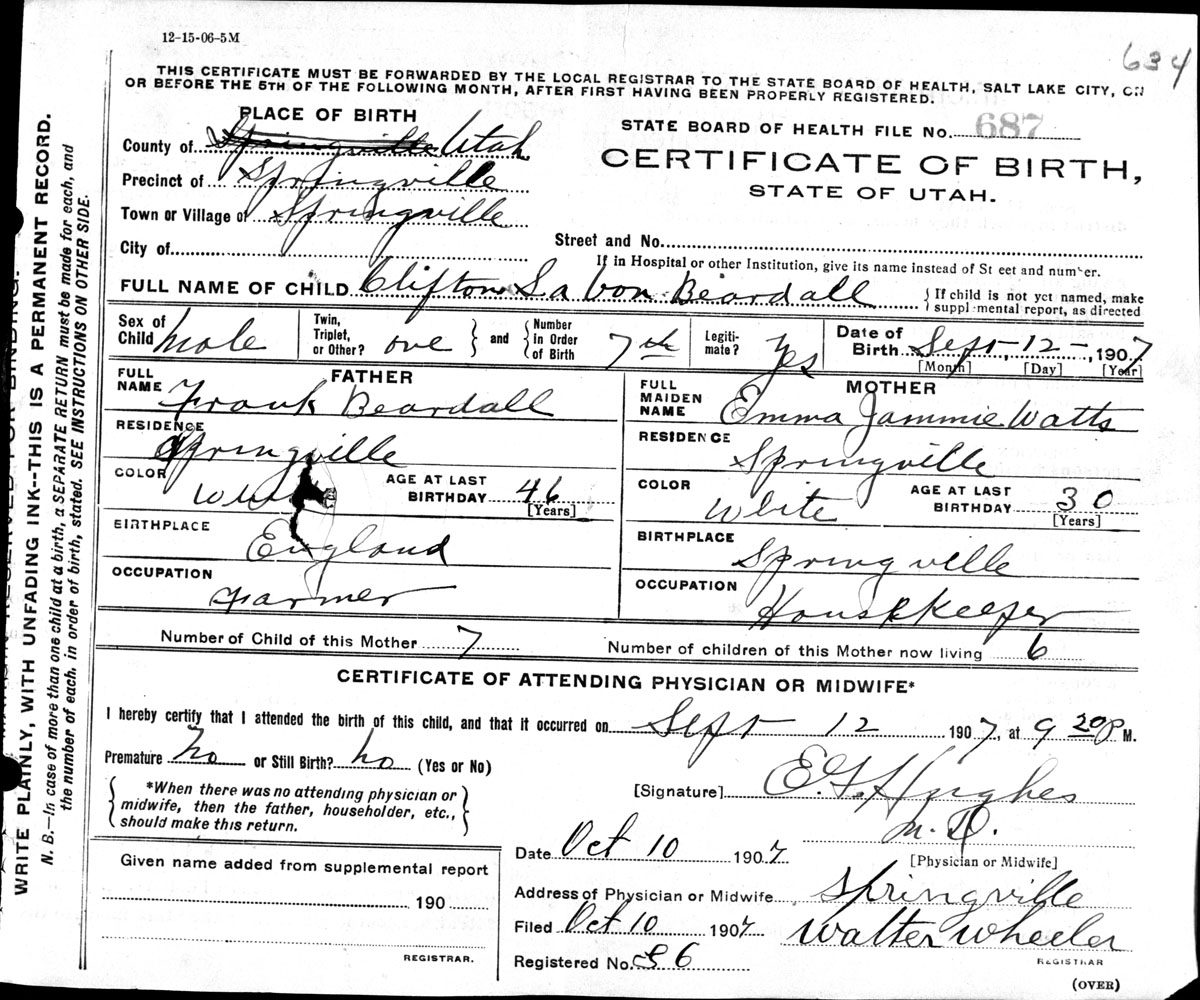 12-15-06-5M
634
THIS CERTIFICATE MUST BE FORWARDED BY THE LOCAL REGISTRAR TO THE STATE BOARD OF HEALTH, SALT LAKE CITY, ON
OR BEFORE THE 5TH OF THE FOLLOWING MONTH, AFTER FIRST HAVING BEEN PROPERLY REGISTERED.
PLACE OF BIRTH
STATE BOARD OF HEALTH FILE No. 687
County of Springville Utah
CERTIFICATE OF BIRTH,
Precinct of Springville
STATE OF UTAH.
Town or Village of Springville
City of
Street and No.
If in Hospital or other Institution, give its name instead of St eet and number.
FULL NAME OF CHILD Clifton La Von Beardall
{If child is not yet named, make
supplmental report, as directed
Sex of Child Male Twin, Triplet, or Other? one } and { Number in Order of Birth 7th Legiti-mate? Yes Date of Birth Sept, 12, 1907
[Month] [Day] [Year]
FATHER
FULL NAME Frank Beardall
RESIDENCE Springville
COLOR AGE AT LAST BIRTHDAY 46
[Years]
BIRTHPLACE England
OCCUPATION Farmer
MOTHER
FULL MAIDEN NAME Emma Jammie Watts
RESIDENCE Springville
COLOR White AGE AT LAST BIRTHDAY 30
[Years]
BIRTHPLACE Springville
OCCUPATION Housekeeper
Number of Child of this Mother 7 Number of children of this Mother now living 6
CERTIFICATE OF ATTENDING PHYSICIAN OR MIDWIFE*
I hereby certify that I attended the birth of this child, and that it occurred on Sept 12 1907, at 9 20 P M.
Premature No or Still Birth? No (Yes or No)
*When there was no attending physician or
midwife, then the father, householder, etc.,
should make this return.
[Signature] E. G. Hughes
M. D.
[Physician or Midwife]
Date Oct 10 1907
Address of Physician or Midwife Springville
Filed Oct 10 1907 Walter Wheeler
REGISTRAR
Registered No. 56
(OVER)
Given name added from supplemental report
190
REGISTRAR.
WRITE PLAINLY, WITH UNFADING INK--THIS IS A PERMANENT RECORD.
N. B.—In case of more than one child at a birth, a SEPARATE RETURN must be made for each, and
the number of each, in order of birth, stated. SEE INSTRUCTIONS ON OTHER SIDE.